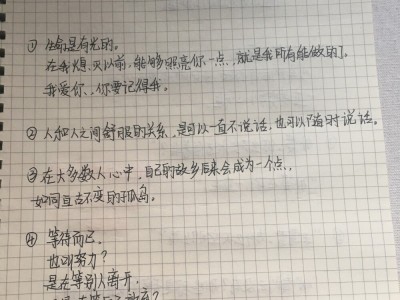 ① 生命是有光的。
在我熄灭以前,能够照亮你一点,就是我所有能做的了。
我爱你,你要记得我。
② 人和人之间舒服的关系,是可以一直不说话,也可以随时说话。
③ 在大多数人心中,自己的故乡后来会成为一个点,
如同亘古不变的孤岛。
④ 等待而已。
也叫努力?
是在等别人离开,